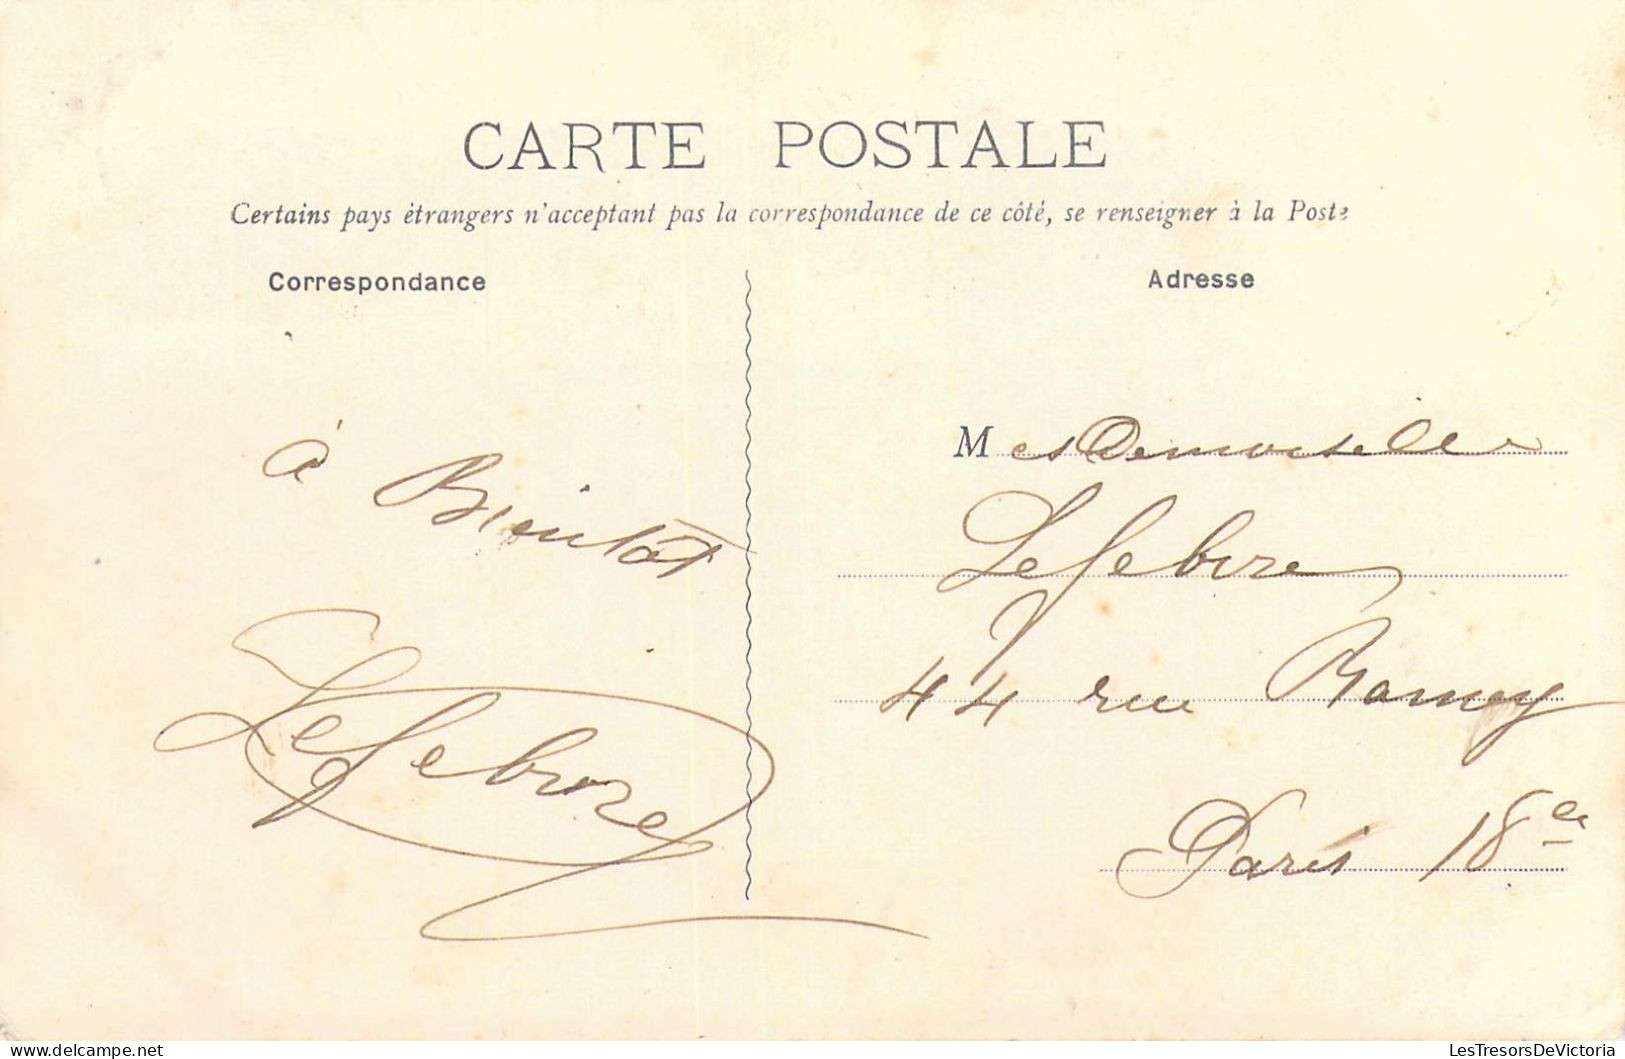 CARTE POSTALE
Certains pays étrangers n'acceptant pas la correspondance de ce côté, se renseigner à la Poste
Correspondance
à Bientôt
Lefebvre
Adresse
MesDemoiselles
Lefebvre
44 rue Ramey
Paris 18e
LesTresorsDeVictoria